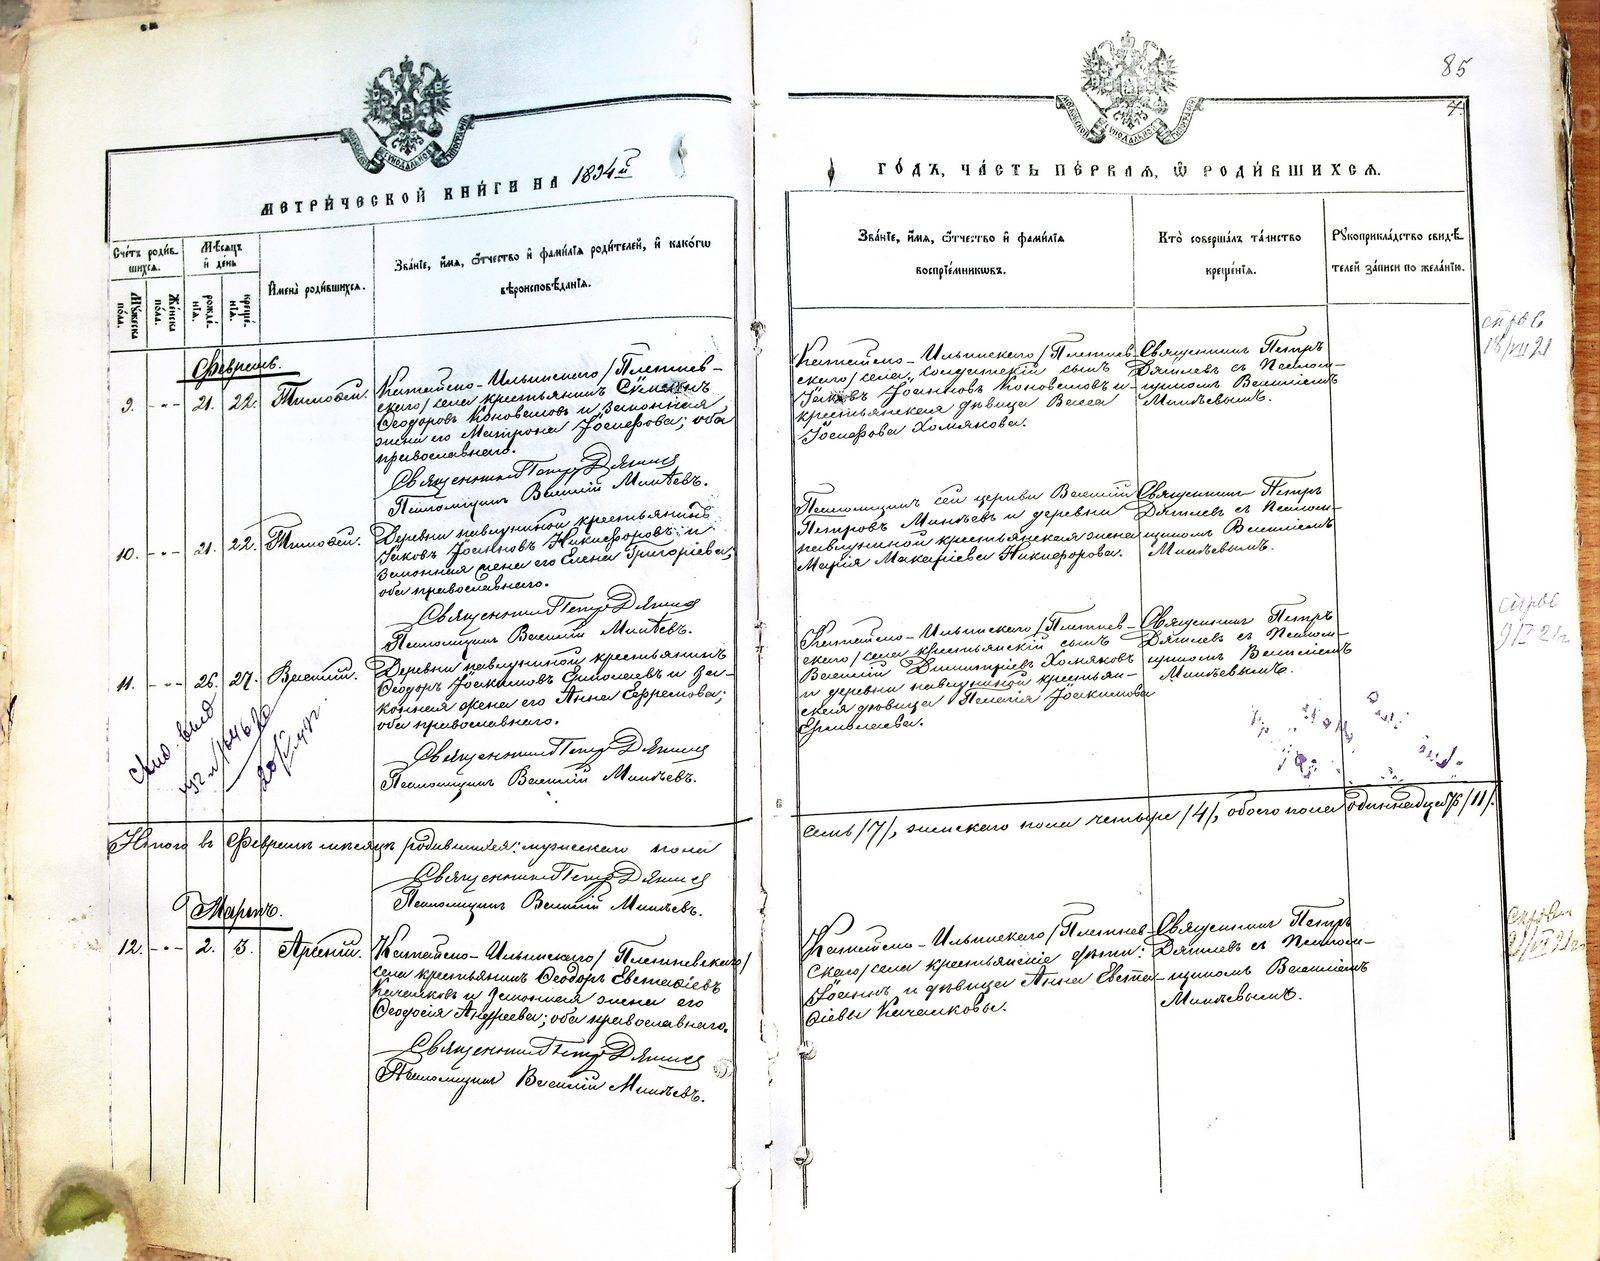 85
4.
МОСКОВСКОЙ СѴНОДАЛЬНОЙ ТИПОГРАФІИ
МОСКОВСКОЙ СѴНОДАЛЬНОЙ ТИПОГРАФІИ
МЕТРИ́ЧЕСКОЙ КНИ́ГИ НА 1894й
ГО́ДЪ, ЧА́СТЬ ПЕ́РВАЯ, Ѿ РОДИ́ВШИХСЯ.
Сче́тъ роди́в-
шихся.
Мѣ́сяцъ
и҆ де́нь
И҆мена̀ роди́вшихся.
Зва́нїе, и҆́мя, ѻ҆́тчество и҆ фами́лїя роди́телей, и҆ како́гѡ
вѣроисповѣ́данїя.
Мꙋ́жеска
по́ла.
Же́нска
по́ла.
рожде́-
нїя.
креще́-
нїя.
Зва́нїе, и҆́мя, ѻ҆́тчество и҆ фами́лїя
воспрїе́мникѡвъ.
Кто̀ соверша́лъ та́инство
креще́нїя.
Рꙋкоприкла́дство свидѣ́-
телей за́писи по жела́нїю.
Февраль.
9. -"- 21. 22. Тимоѳей.
Катайско-Ильинскаго /Плетнев-
скаго/ села крестьянинъ Симеонъ
Ѳеодоровъ Коноваловъ и законная
жена его Матрона Іосифова; оба
православнаго.
Священникъ Петръ Дягилевъ
Псаломщикъ Василій Минѣевъ.
Катайско-Ильинскаго /Плетнев-
скаго/ села солдатскій сынъ
Іаковъ Іоанновъ Коноваловъ и
крестьянская дѣвица Васса
Іосифова Хомякова.
Священникъ Петръ
Дягилевъ съ Псалом-
щикомъ Василіемъ
Минѣевымъ.
справ
18/VIII 21
10. -"- 21. 22. Тимоѳей.
Деревни Павлуниной крестьянинъ
Іаковъ Іоанновъ Никифоровъ и
законная жена его Елена Григоріева;
оба православнаго.
Священникъ Петръ Дягилевъ
Псаломщикъ Василій Минѣевъ.
Псаломщикъ сей церкви Василій
Петровъ Минѣевъ и деревни
Павлуниной крестьянская жена
Марія Макаріева Никифорова.
Священникъ Петръ
Дягилевъ съ Псалом-
щикомъ Василіемъ
Минѣевымъ.
11. -"- 26. 27. Василій.
Деревни Павлуниной крестьянинъ
Ѳеодоръ Іоакимовъ Ермолаевъ и за-
конная жена его Анна Ефремова;
оба православнаго.
Священникъ Петръ Дягилевъ
Псаломщикъ Василій Минѣевъ.
Катайско-Ильинскаго /Плетнев-
скаго/ села крестьянскій сынъ
Василій Димитріевъ Хомяковъ
и деревни Павлуниной крестьян-
ская дѣвица Пелагія Іоакимова
Ермолаева.
Священникъ Петръ
Дягилевъ съ Псалом-
щикомъ Василіемъ
Минѣевымъ.
Итого въ Февралѣ мѣсяцѣ родившихся: мужескаго пола
семь /7/, женскаго пола четыре /4/, обоего пола одиннадцать /11/.
Священникъ Петръ Дягилевъ
Псаломщикъ Василій Минѣевъ.
Мартъ.
12. -"- 2. 3. Арсеній.
Катайско-Ильинскаго /Плетневскаго/
села крестьянинъ Ѳеодоръ Евстаѳіевъ
Качалковъ и законная жена его
Ѳеодосія Андреева; оба православнаго.
Священникъ Петръ Дягилевъ
Псаломщикъ Василій Минѣевъ.
Катайско-Ильинскаго /Плетнев-
скаго/ села крестьянскіе дѣти:
Іоаннъ и дѣвица Анна Евста-
ѳіевы Качалковы.
Священникъ Петръ
Дягилевъ съ Псалом-
щикомъ Василіемъ
Минѣевымъ.